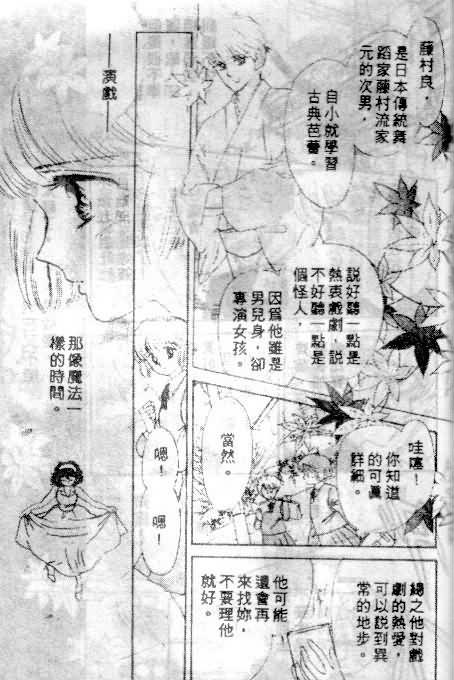 藤村良，
是日本傳統舞
蹈家藤村流家
元的次男，
自小就學習
古典芭蕾。
說好聽一點是
熱衷戲劇，說
不好聽一點是
個怪人，
因爲他雖是
男兒身，卻
專演女孩。
哇噻！
你知道
的可眞
詳細。
當然。
總之他對戲
劇的熱愛，
可以說到異
常的地步。
他可能
還會再
來找妳，
不要理他
就好。
嗯！
嗯！
——演戲——
那像魔法一
樣的時間。